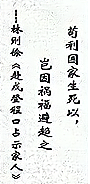 苟利国家生死以，
岂因祸福避趋之
---林则徐《赴戍登程口占示家人》